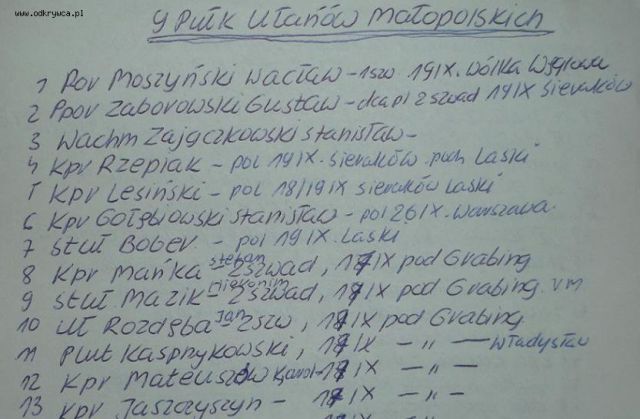 www.odkrywca.pl
9 Pułk Ułanów Małopolskich
1 Por Moszyński Wacław - 1szw 19IX. Wólka Węglowa
2 Ppor Zaborowski Gustaw - dca pl 2 szwad 19IX Sieraków
3 Wachm Zajączkowski Stanisław -
4 Kpr Rzepiak - pol 19IX. Sieraków Laski
5 Kpr Lesiński - pol 18/19IX Sieraków Laski
6 Kpr Gołębiowski Stanisław - pol 26IX. Warszawa.
7 Stuł Bober - pol 19IX. Laski
8 Kpr Mańka Stefan - 2szwad, 17IX pod Grabiną
9 Stuł Mazik Hieronim - 2szwad, 17IX pod Grabiną. vm
10 uł Rozdęba Jan - 2szw, 17IX pod Grabiną
11 Plut Kasprzykowski, 17IX - " - Władysław
12 Kpr Mateuszów Karol - 17IX - " -
13 Kpr Jaszczyszyn - 17IX - " -